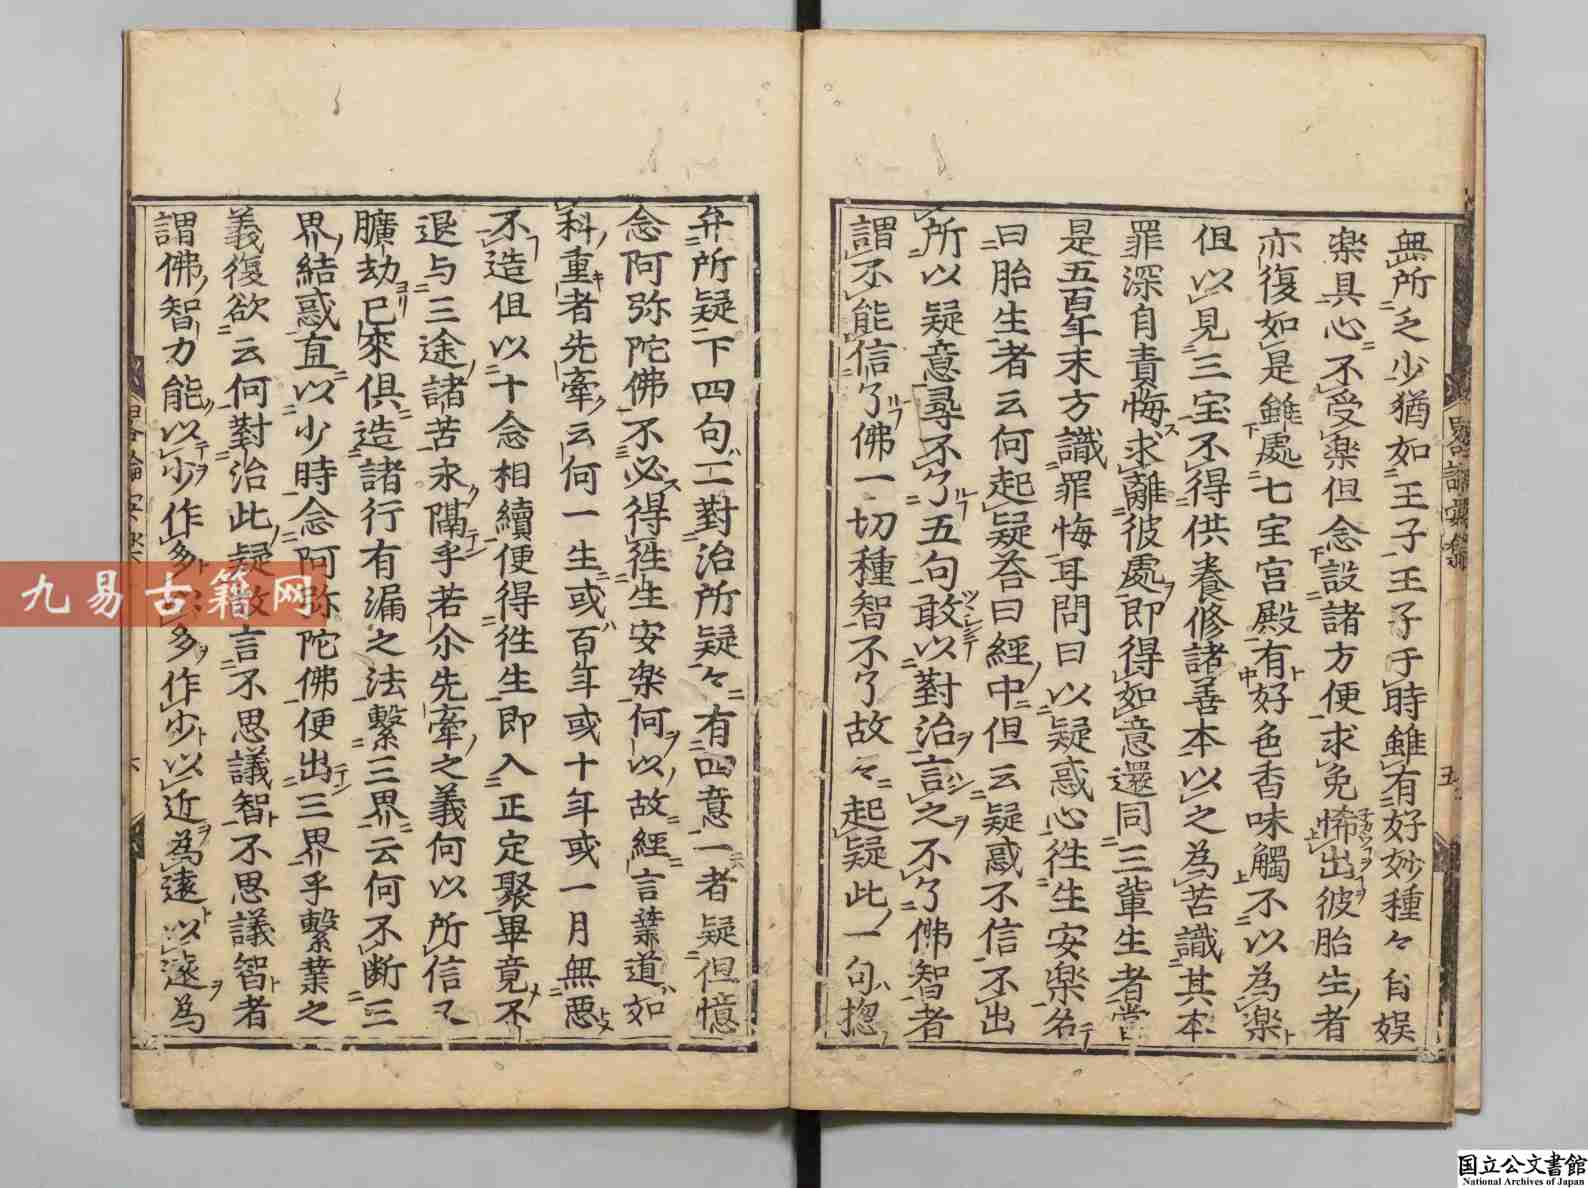 無所乏少猶如王子王子于時雖有好妙種々自娯
楽具心不受楽但念設諸方便求免悕出彼胎生者
亦復如是雖處七宝宮殿有好色香味觸不以為楽
但以見三宝不得供養修諸善本以之為苦識其本
罪深自責悔求離彼處即得如意還同三輩生者當
是五百年末方識罪悔耳問曰以疑惑心徃生安楽名
曰胎生者云何起疑荅曰經中但云疑惑不信不出
所以疑意尋不了五句敢以對治言之不了佛智者
謂不能信了佛一切種智不了故々起疑此一句惣
弁所疑下四句二對治所疑々有四意一者疑但憶
念阿弥陀佛不必得徃生安楽何以故經言業道如
科重者先牽云何一生或百年或十年或一月無悪
不造但以十念相續便得徃生即入正定聚畢竟不
退与三途諸苦永隔乎若尒先牽之義何以所信又
曠劫已來俱造諸行有漏之法繫三界云何不断三
界結惑直以少時念阿弥陀佛便出三界乎繫業之
義復欲云何對治此疑故言不思議智不思議智者
謂佛智力能以少作多以多作少以近為遠以遠為
五
六
九易古籍网
国立公文書館
National Archives of Japan